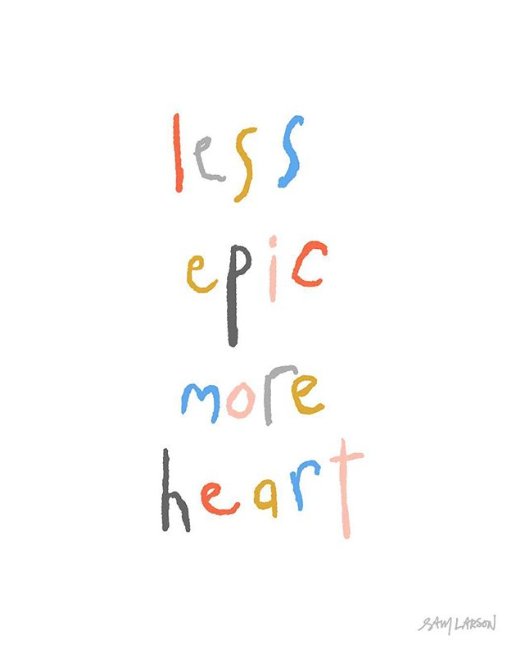 less
epic
more
heart
SAM LARSON